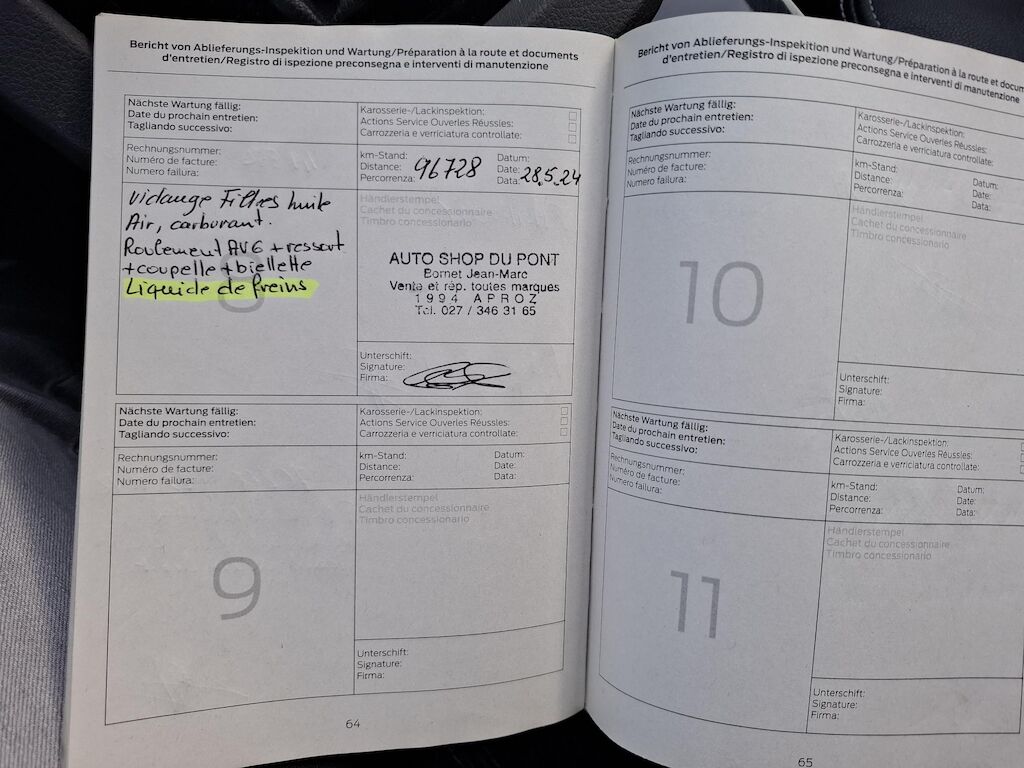 Bericht von Ablieferungs-Inspekition und Wartung/Préparation à la route et documents
d'entretien/Registro di ispezione preconsegna e interventi di manutenzione
Nächste Wartung fällig:
Date du prochain entretien:
Tagliando successivo:
Karosserie-/Lackinspektion:
Actions Service Ouverles Réussles:
Carrozzeria e verriciatura controllate:
Rechnungsnummer:
Numéro de facture:
Numero failura:
km-Stand:
Distance:
Percorrenza:
96728
Datum:
Date:
Data:
28.5.24
Vidange Filtres huile
Air, carburant.
Roulement AVG + ressort
+ coupelle + biellette
Liquide de freins
8
Händlerstempel
Cachet du concessionnaire
Timbro concessionario
AUTO SHOP DU PONT
Bornet Jean-Marc
Vente et rép. toutes marques
1994 APROZ
Tél. 027 / 346 31 65
Unterschift:
Signature:
Firma:
Nächste Wartung fällig:
Date du prochain entretien:
Tagliando successivo:
Karosserie-/Lackinspektion:
Actions Service Ouverles Réussles:
Carrozzeria e verriciatura controllate:
Rechnungsnummer:
Numéro de facture:
Numero failura:
km-Stand:
Distance:
Percorrenza:
Datum:
Date:
Data:
9
Händlerstempel
Cachet du concessionnaire
Timbro concessionario
Unterschift:
Signature:
Firma:
64
Bericht von Ablieferungs-Inspekition und Wartung/Préparation à la route et docum
d'entretien/Registro di ispezione preconsegna e interventi di manutenzione
Nächste Wartung fällig:
Date du prochain entretien:
Tagliando successivo:
Karosserie-/Lackinspektion:
Actions Service Ouverles Réussles:
Carrozzeria e verriciatura controllate:
Rechnungsnummer:
Numéro de facture:
Numero failura:
km-Stand:
Distance:
Percorrenza:
Datum:
Date:
Data:
10
Händlerstempel
Cachet du concessionnaire
Timbro concessionario
Unterschift:
Signature:
Firma:
Nächste Wartung fällig:
Date du prochain entretien:
Tagliando successivo:
Karosserie-/Lackinspektion:
Actions Service Ouverles Réussles:
Carrozzeria e verriciatura controllate:
Rechnungsnummer:
Numéro de facture:
Numero failura:
km-Stand:
Distance:
Percorrenza:
Datum:
Date:
Data:
11
Händlerstempel
Cachet du concessionnaire
Timbro concessionario
Unterschift:
Signature:
Firma:
65